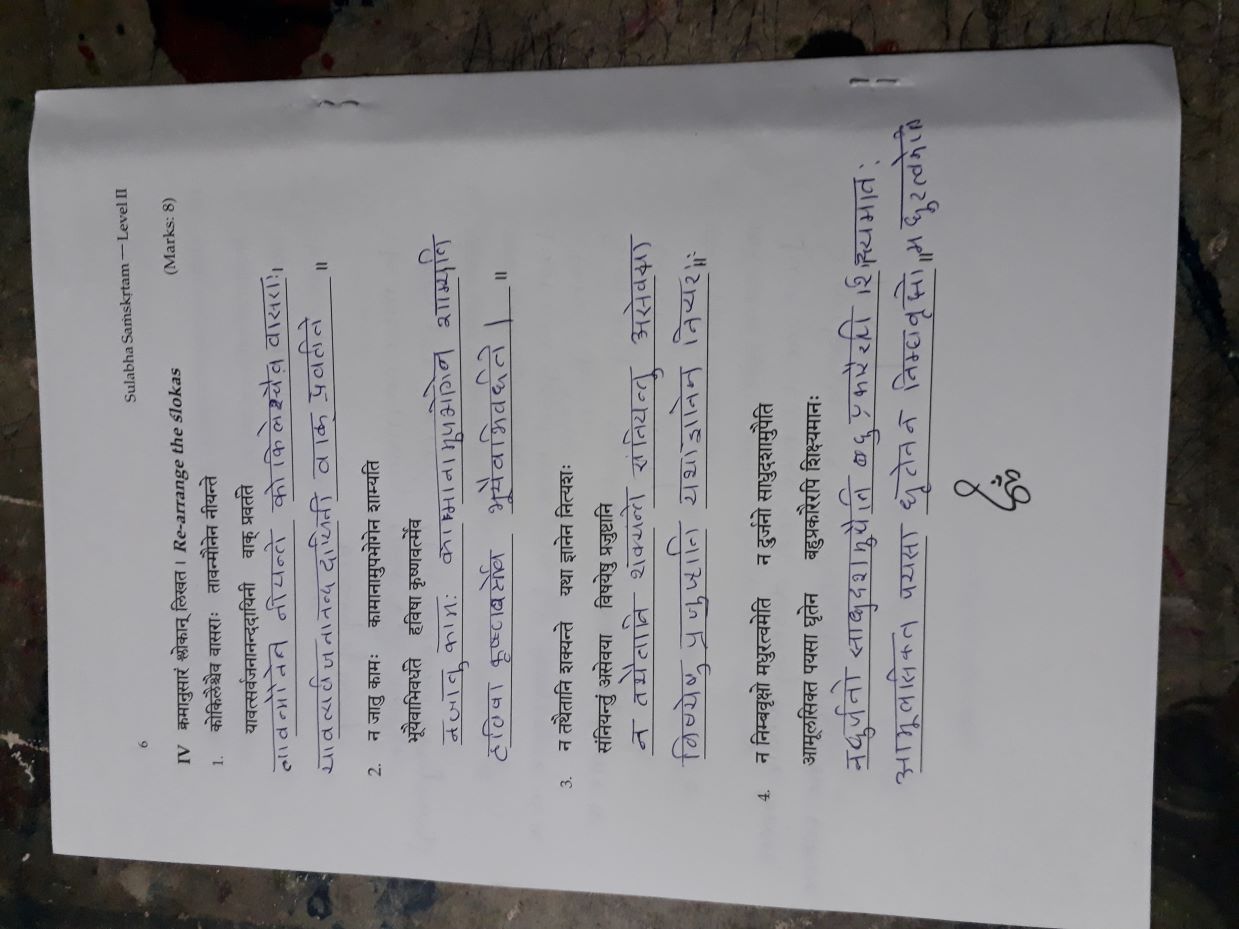 6
Sulabha Saṁskṛtam — Level II
IV क्रमानुसारं श्लोकान् लिखत। Re-arrange the ślokas (Marks: 8)
1. कोकिलैश्चैव वासराः तावन्मौनेन नीयन्ते
यावत्सर्वजनानन्ददायिनी वाक् प्रवर्तते
तावन्मौनेन नीयन्ते कोकिलेश्चैव वासराः।
यावत्सर्वजनानन्द दायिनी वाक् प्रवर्तते ॥
2. न जातु कामः कामानामुपभोगेन शाम्यति
भूयैवाभिवर्धते हविषा कृष्णवर्त्मेव
नजातु कामः कामानामुपभोगेन शाम्यति
हविषा भूयैवाभिवर्धते | ॥
3. न तथैतानि शक्यन्ते यथा ज्ञानेन नित्यशः
संनियन्तुं असेवया विषयेषु प्रजुष्टानि
न तथैतानि शक्यन्ते संनियन्तु असेवया
विषयेषु प्रजुष्टानि यथाज्ञानेन ॥
4. न निम्बवृक्षो मधुरत्वमेति न दुर्जनो साधुदशामुपैति
आमूलसिक्त पयसा घृतेन बहुप्रकारैरपि शिक्ष्यमानः
नदुर्जनो साधुदशमुपैति बहु प्रकारैरपि शिक्ष्यमानः
आमूलसिकत पयसा घृतेन न निम्बवृक्षो ॥ मधुरत्वमेति
ॐ